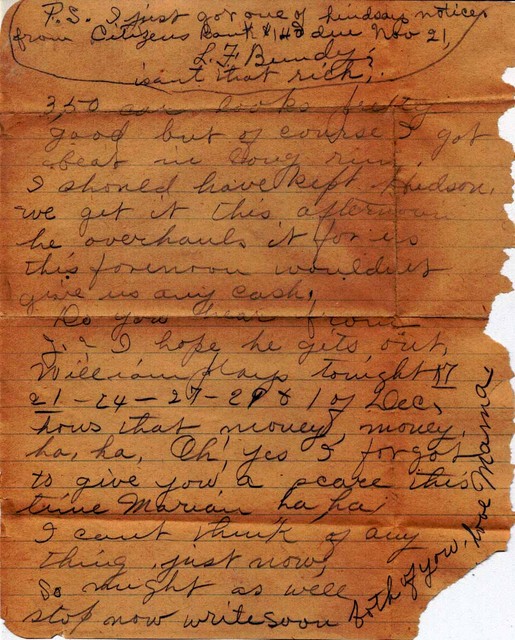 P.S. I just got one of Lindsays notices
from Citizens Bank $140 due Nov 21,
L. F. Bundy,
isant that rich,
350 car looks pretty
good but of course I got
beat in long run,
I should have kept Hudson,
we get it this afternoon
he overhauls it for us
this forenoon wouldnt
give us any cash,
Do you hear from
J. I hope he gets out,
William plays tonight 17
21-24-27-29 & 1 of Dec,
hows that money, money,
ha, ha, Oh, yes I forgot
to give you a scare this
time Marian ha ha
I cant think of any
thing just now,
So might as well
stop now write soon
both of you, love Mama